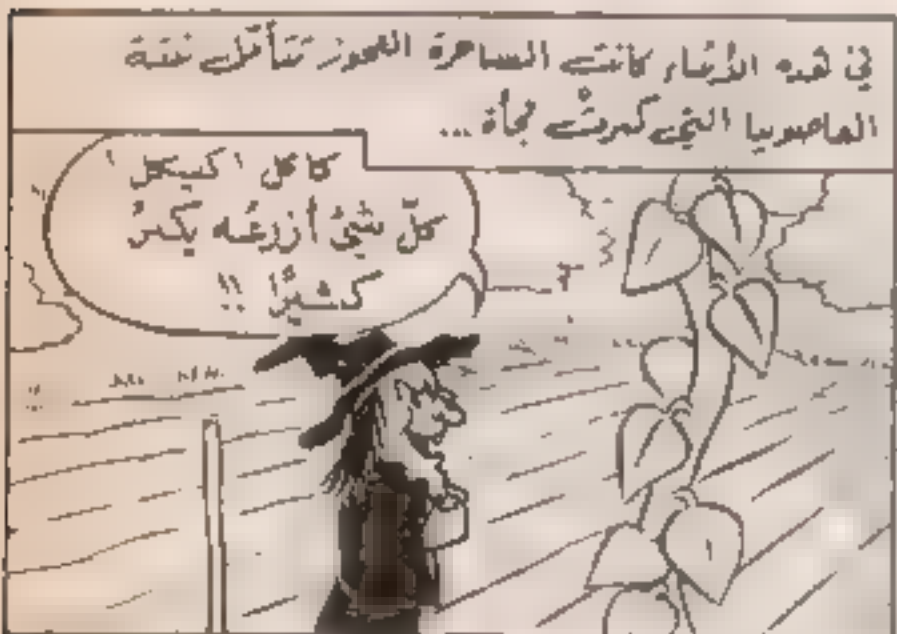 في هذه الأثناء كانت الساحرة العجوز تتأمّل نبتة
الفاصوليا التي كبرتْ فجأة ...
كل شيئ أزرعُه يكبرُ
كثيرًا !!